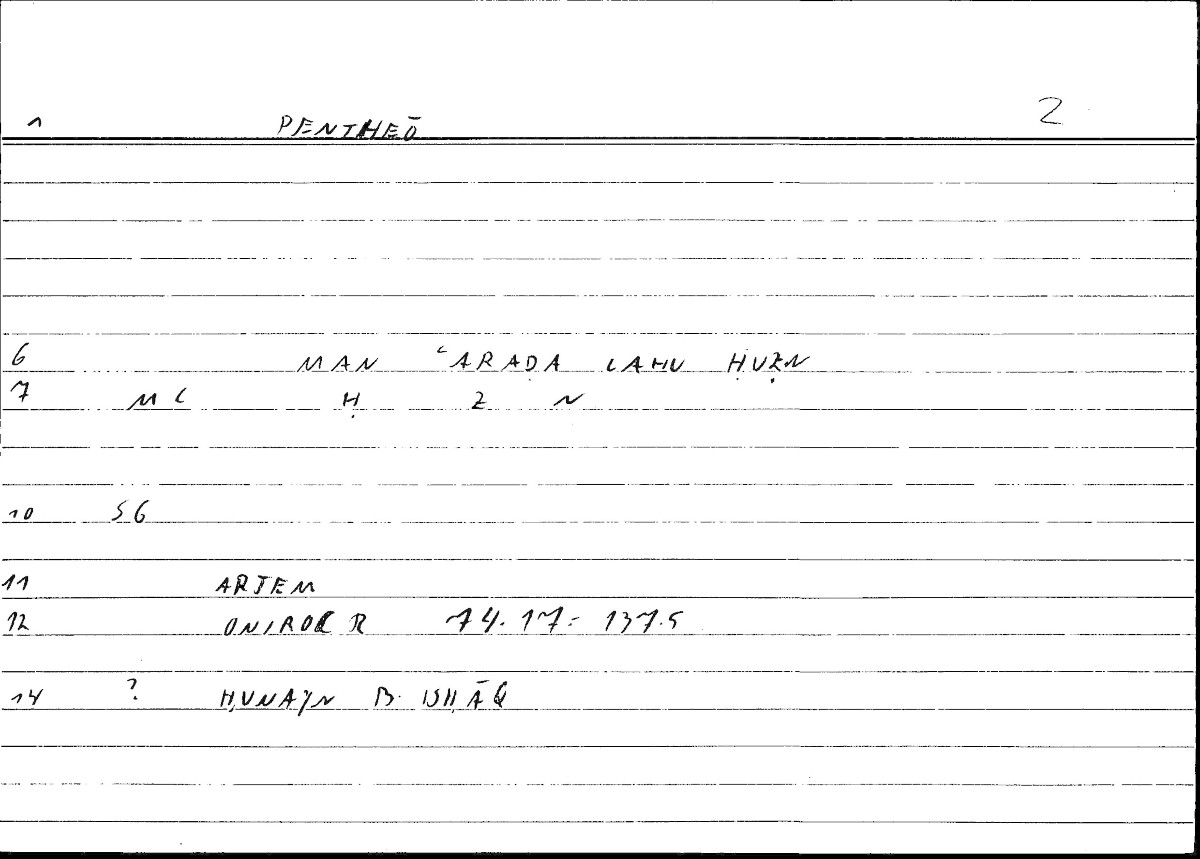 1 PENTHEŌ 2
6 MAN ʿARAḌA LAHU ḤUZN
7 MC Ḥ Z N
10 SG
11 ARTEM
12 ONIROCR 74.17 = 137.5
14 ? ḤUNAYN B. ISḤĀQ